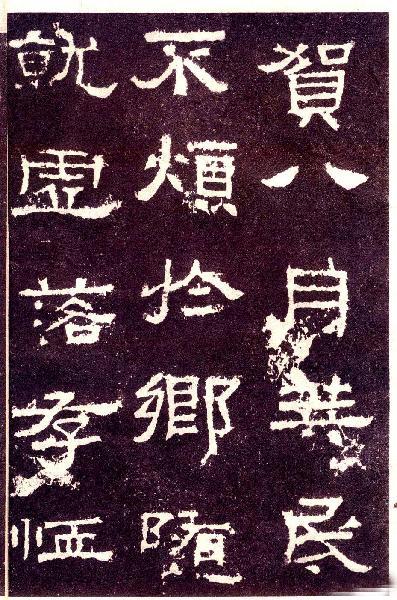 賀八月筭民
不煩於鄉隨
就虛落存恤